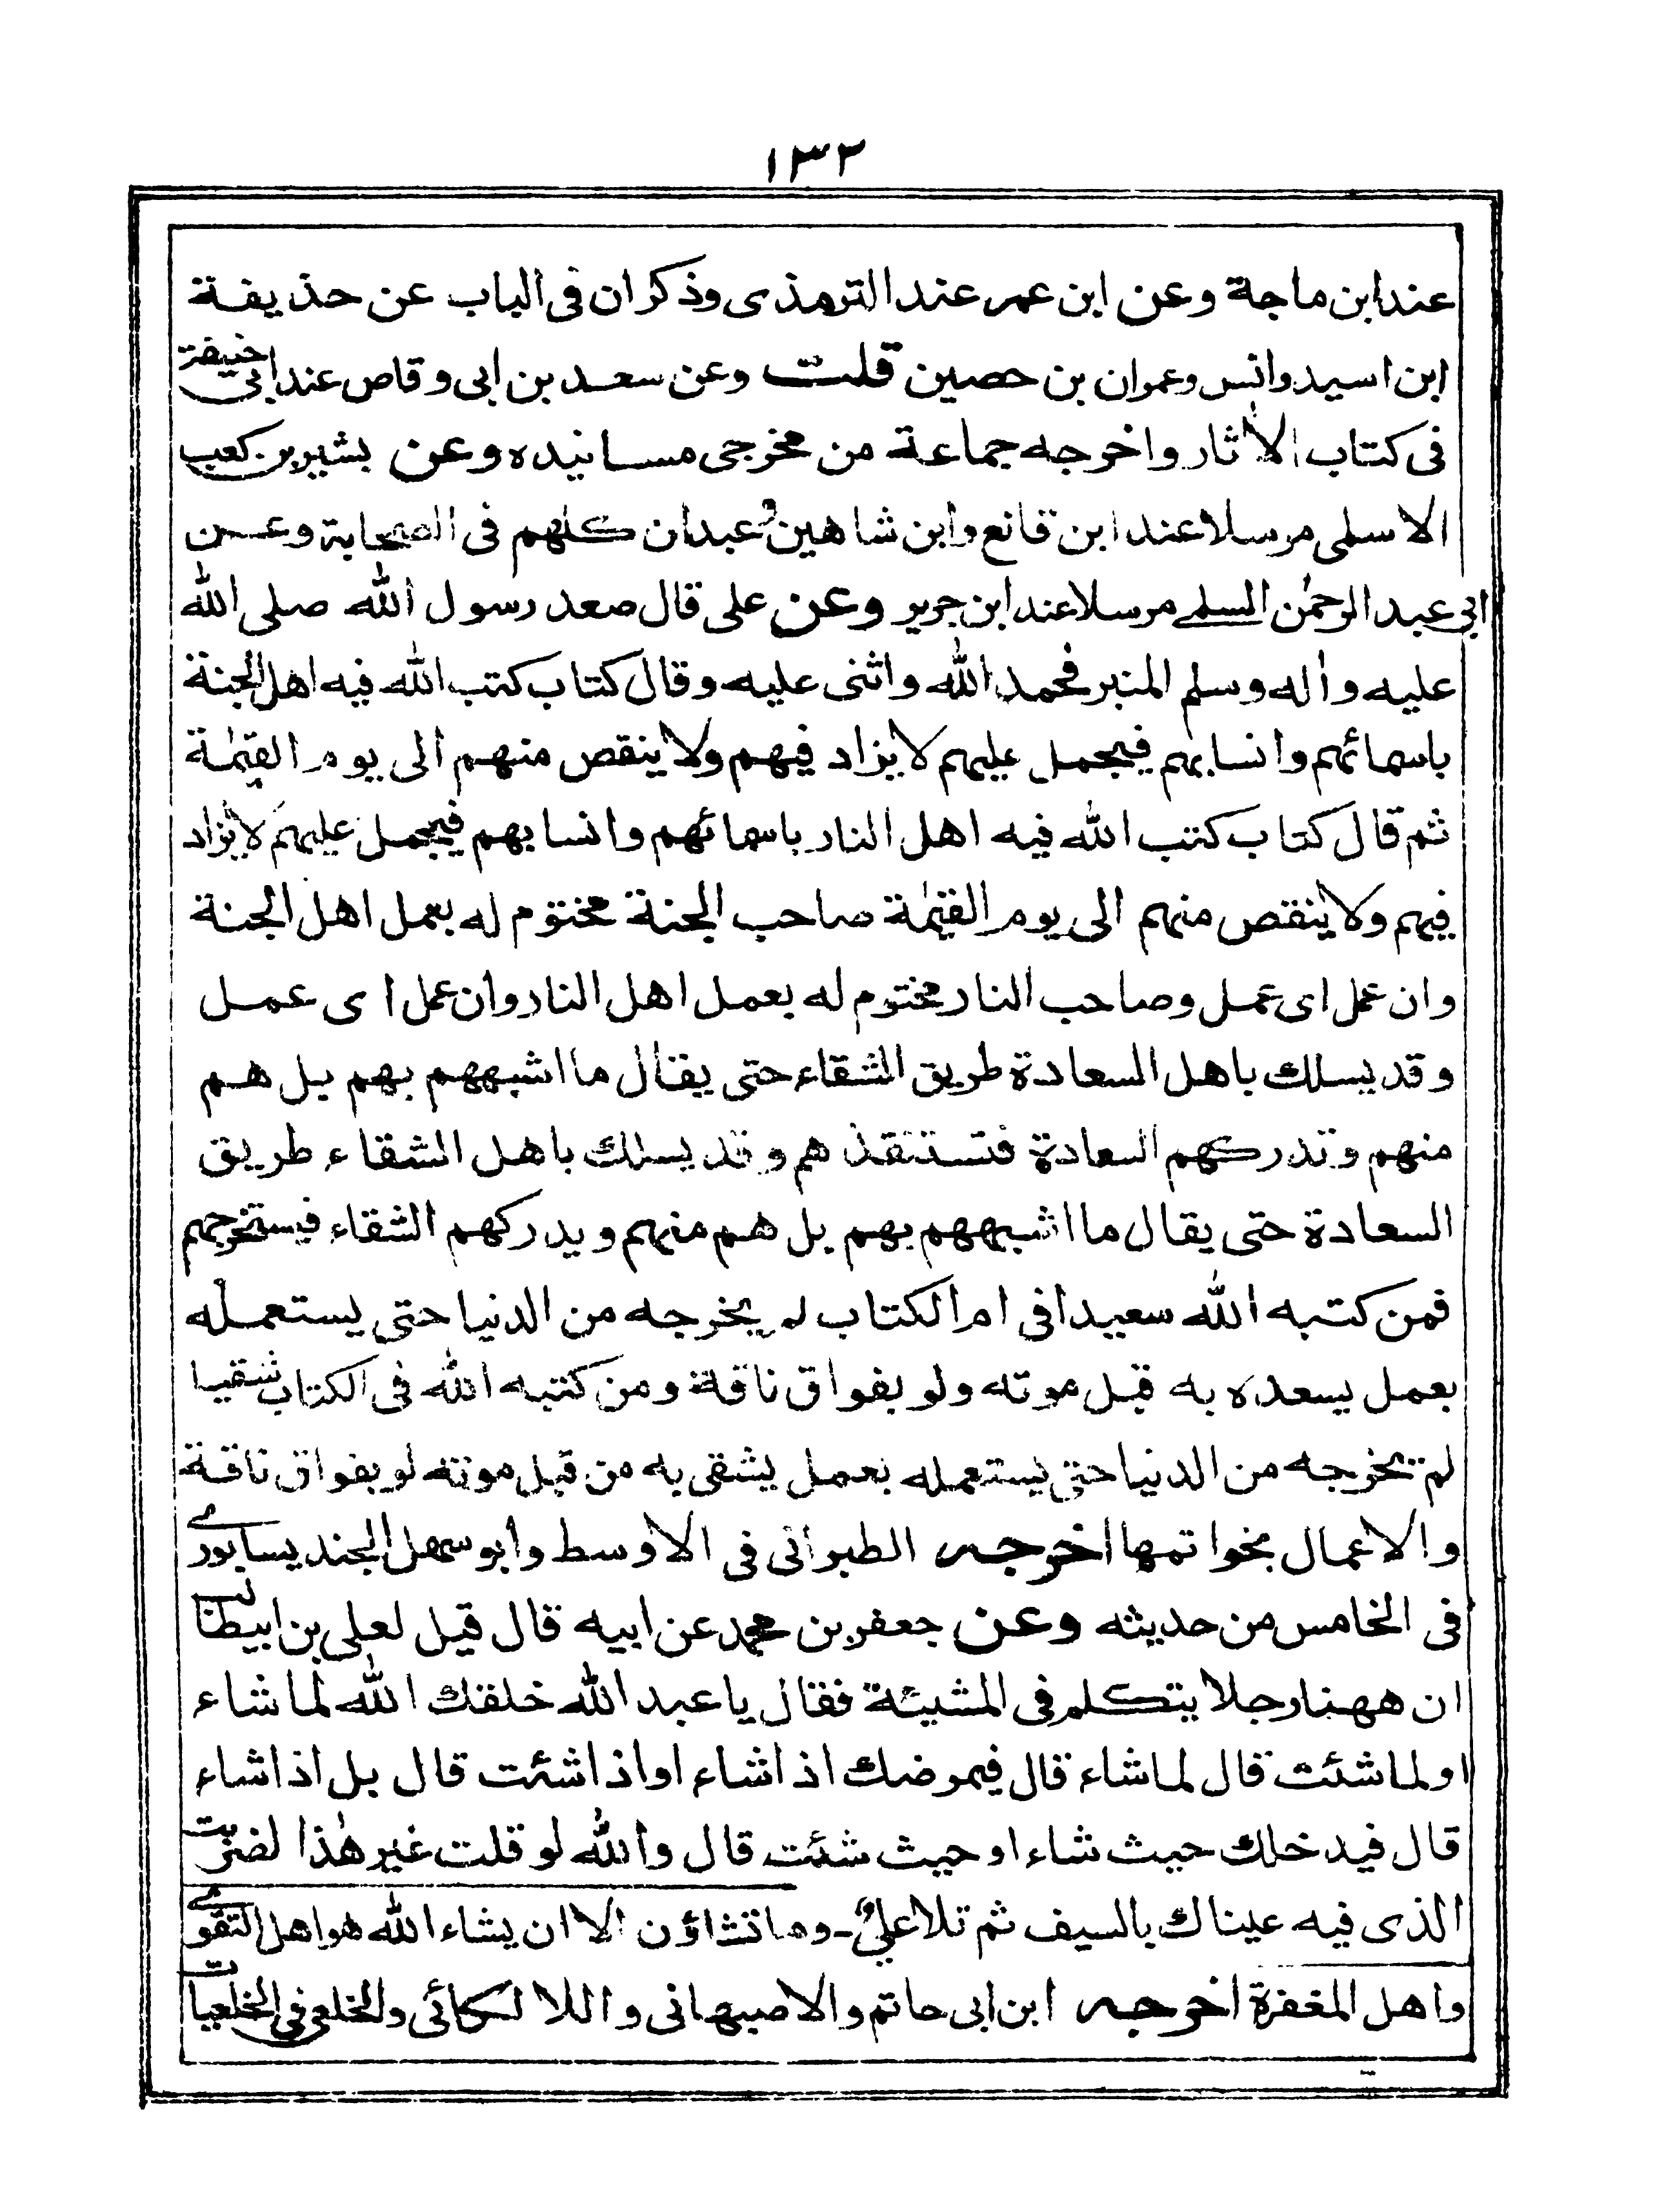 ١٣٢
عند ابن ماجة وعن ابن عمر عند الترمذى وذكر ان فى الباب عن حذيفة
ابن اسيد وانس وعمران بن حصين قلت وعن سعد بن ابى وقاص عند ابى حنيفة
فى كتاب الاٰثار واخرجه جماعة من مخرجى مسانيده وعن بشير بن كعب
الاسلمى مرسلا عند ابن قانع وابن شاهين وعبدان كلهم فى الصحابة وعن
ابى عبد الرحمٰن السلمے مرسلا عند ابن جرير وعن على قال صعد رسول الله صلى الله
عليه واٰله وسلم المنبر فحمد الله واثنى عليه وقال كتاب كتب الله فيه اهل الجنة
باسمائهم وانسابهم فيجمل عليهم لا يزاد فيهم ولا ينقص منهم الى يوم القيٰمة
ثم قال كتاب كتب الله فيه اهل النار باسمائهم وانسابهم فيجمل عليهم لا يزاد
فيهم ولا ينقص منهم الى يوم القيٰمة صاحب الجنة مختوم له بعمل اهل الجنة
وان عمل اى عمل وصاحب النار مختوم له بعمل اهل النار وان عمل اى عمل
وقد يسلك باهل السعادة طريق الشقاء حتى يقال ما اشبههم بهم بل هم
منهم وتدركهم السعادة فتستنقذهم وقد يسلك باهل الشقاء طريق
السعادة حتى يقال ما اشبههم بهم بل هم منهم ويدركهم الشقاء فيستخرجهم
فمن كتبه الله سعيدا فى ام الكتاب لم يخرجه من الدنيا حتى يستعمله
بعمل يسعده به قبل موته ولو بفواق ناقة ومن كتبه الله فى الكتاب شقيا
لم يخرجه من الدنيا حتى يستعمله بعمل يشقى به من قبل موته لو بفواق ناقة
والاعمال بخواتمها اخرجه الطبرانى فى الاوسط وابو سهل الجنديسابورے
فى الخامس من حديثه وعن جعفر بن محمد عن ابيه قال قيل لعلى بن ابيطالب
ان ههنا رجلا يتكلم فى المشيئة فقال يا عبد الله خلقك الله لما شاء
او لما شئت قال لما شاء قال فيمرضك اذا شاء او اذا شئت قال بل اذا شاء
قال فيدخلك حيث شاء او حيث شئت قال والله لو قلت غير هٰذا لضربت
الذى فيه عيناك بالسيف ثم تلا علىؓ - وما تشاؤن الا ان يشاء الله هو اهل التقوے
واهل المغفرة اخرجه ابن ابى حاتم والاصبهانى واللالكائى والخلعى فى الخلعيات